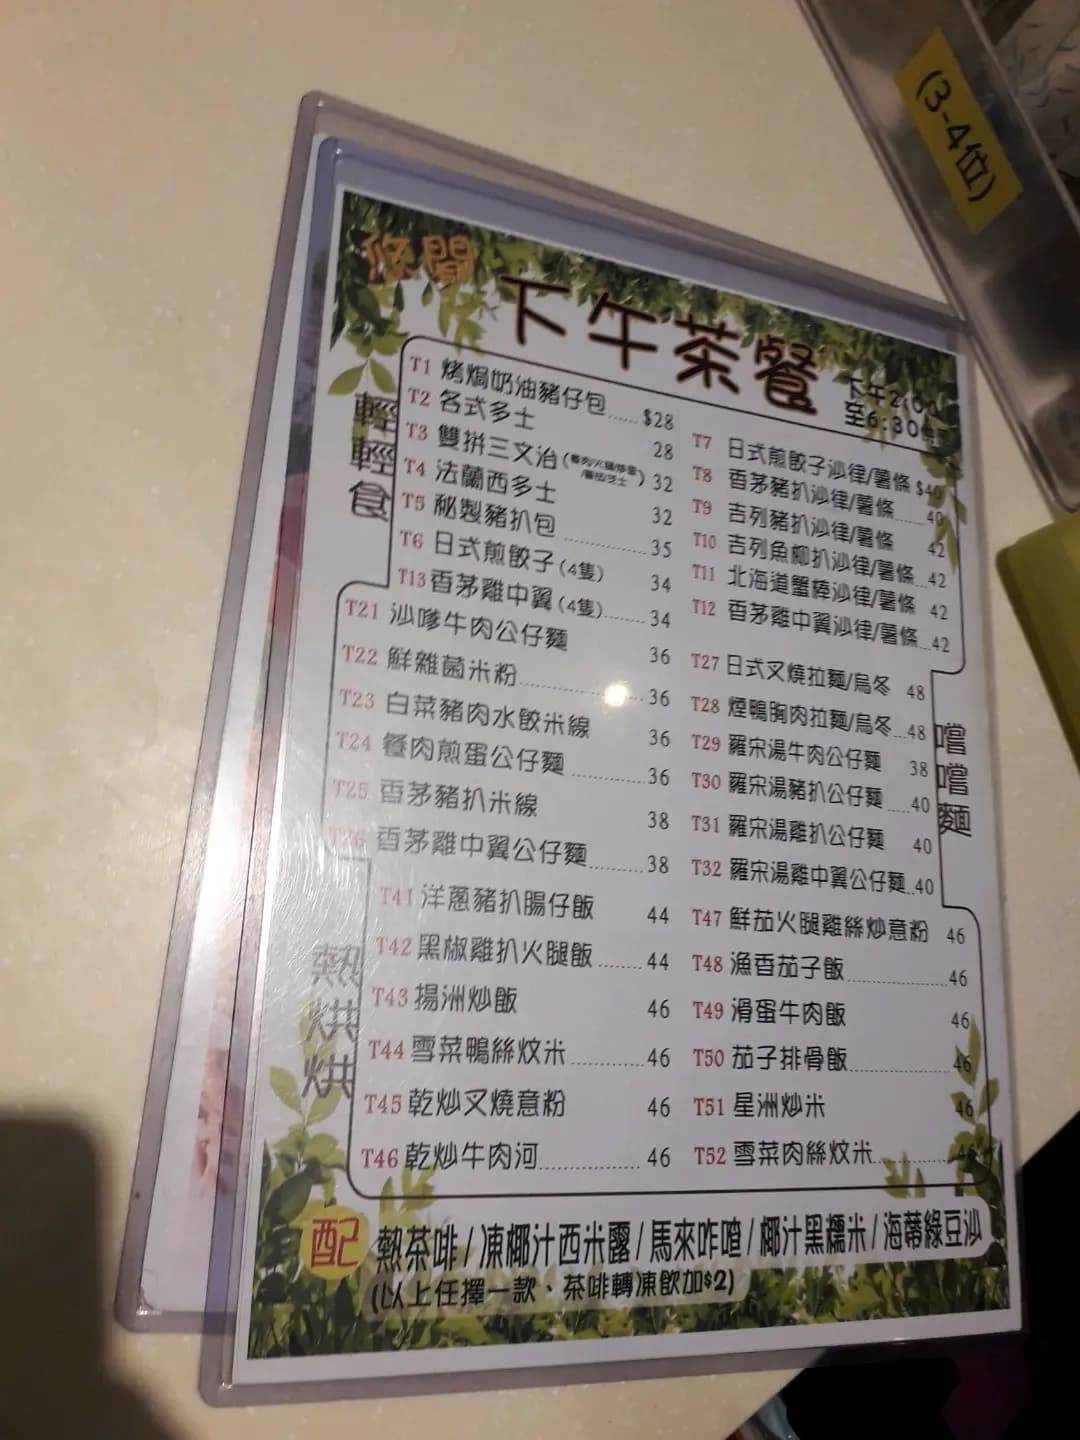 (3-4位)
悠閒
下午茶餐
下午2:00
至6:30
輕輕食
T1 烤焗奶油豬仔包......$28
T2 各式多士 28
T3 雙拼三文治 32
T4 法蘭西多士 32
T5 秘製豬扒包 35
T6 日式煎餃子(4隻) 34
T13 香茅雞中翼(4隻) 34
T7 日式煎餃子沙律/薯條 $40
T8 香茅豬扒沙律/薯條 40
T9 吉列豬扒沙律/薯條 42
T10 吉列魚柳扒沙律/薯條 42
T11 北海道蟹棒沙律/薯條 42
T12 香茅雞中翼沙律/薯條 42
T21 沙嗲牛肉公仔麵 36
T22 鮮雜菌米粉 36
T23 白菜豬肉水餃米線 36
T24 餐肉煎蛋公仔麵 36
T25 香茅豬扒米線 38
T26 香茅雞中翼公仔麵 38
T27 日式叉燒拉麵/烏冬 48
T28 煙鴨胸肉拉麵/烏冬 48
T29 羅宋湯牛肉公仔麵 38
T30 羅宋湯豬扒公仔麵 40
T31 羅宋湯雞扒公仔麵 40
T32 羅宋湯雞中翼公仔麵 40
嚐嚐麵
熱烘烘
T41 洋蔥豬扒腸仔飯 44
T42 黑椒雞扒火腿飯 44
T43 揚洲炒飯 46
T44 雪菜鴨絲炆米 46
T45 乾炒叉燒意粉 46
T46 乾炒牛肉河 46
T47 鮮茄火腿雞絲炒意粉 46
T48 漁香茄子飯 46
T49 滑蛋牛肉飯 46
T50 茄子排骨飯 46
T51 星洲炒米 46
T52 雪菜肉絲炆米
配 熱茶啡/凍椰汁西米露/馬來咋喳/椰汁黑糯米/海蒂綠豆沙
(以上任擇一款、茶啡轉凍飲加$2)